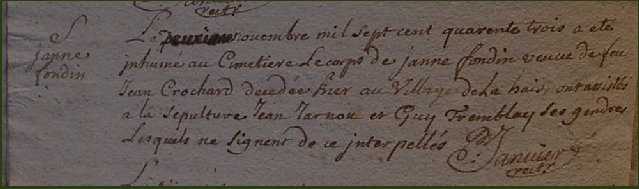 S
janne
fondin
Le deuxieme novembre mil sept cent quarente trois a ete
jnhume au Cimetiere Le corps de janne fondin veuve de feu
Jean Crochard decedée hier au Village de La hais, ont assistés
a la Sepulture Jean Jarnou et Guy Tremblay Ses gendres
Lesquels ne Signent de ce interpellés
Janvier
rectr